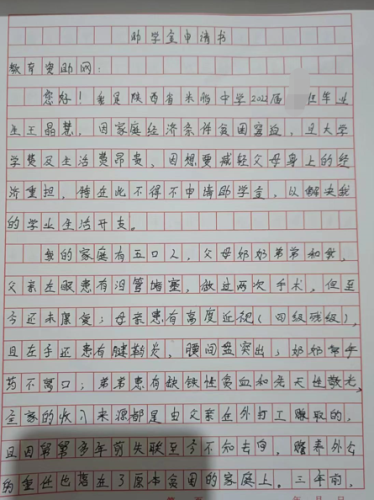 助学金申请书
教育资助网:
您好!我是陕西省米脂中学2022届 班毕业
生王晶慧,因家庭经济条件贫困窘迫,且大学
学费及生活费昂贵,因想要减轻父母身上的经
济重担,特在此不得不申请助学金,以解决我
的学业生活开支。
我的家庭有五口人,父母奶奶弟弟和我,
父亲左眼患有泪管堵塞,做过两次手术,但至
今还未康复;母亲患有高度近视(四级残疾),
且左手还患有腱鞘炎,腰间盘突出;奶奶常年
药不离口;弟弟患有缺铁性贫血和先天性散光。
全家的收入来源都是由父亲在外打工赚取的,
且因舅舅多年前失联至今不知去向,赡养外公
的责任也落在了原本贫困的家庭上。三年的